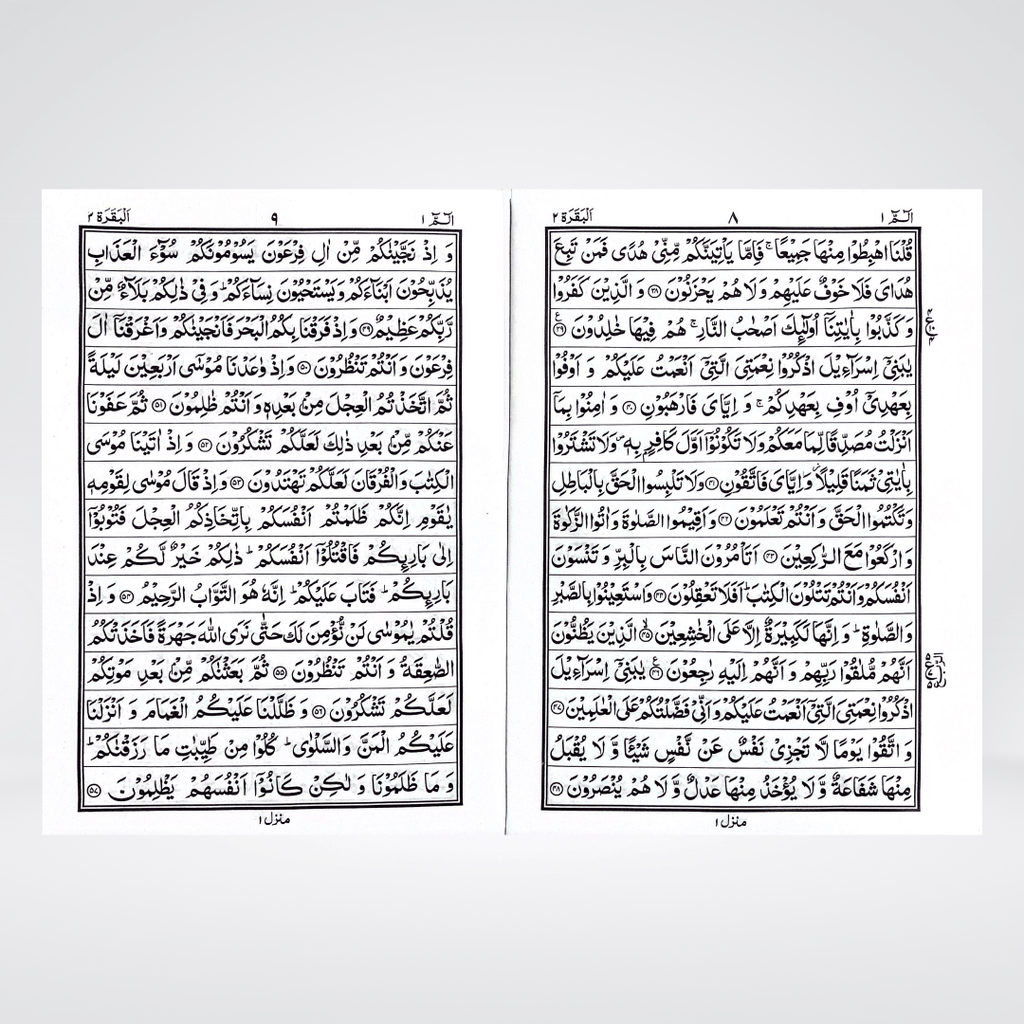 الٓمّٓ ١
٨
اَلْبَقَرَة ٢
قُلْنَا اهْبِطُوْا مِنْهَا جَمِيْعًا ۚ فَاِمَّا يَاْتِيَنَّكُمْ مِّنِّيْ هُدًى فَمَنْ تَبِعَ
هُدَايَ فَلَا خَوْفٌ عَلَيْهِمْ وَ لَا هُمْ يَحْزَنُوْنَ ۝٣٨ وَ الَّذِيْنَ كَفَرُوْا
وَ كَذَّبُوْا بِاٰيٰتِنَاۤ اُولٰٓئِكَ اَصْحٰبُ النَّارِ ۚ هُمْ فِيْهَا خٰلِدُوْنَ ۝٣٩
يٰبَنِيْۤ اِسْرَآءِيْلَ اذْكُرُوْا نِعْمَتِيَ الَّتِيْۤ اَنْعَمْتُ عَلَيْكُمْ وَ اَوْفُوْا
بِعَهْدِيْۤ اُوْفِ بِعَهْدِكُمْ ۚ وَ اِيَّايَ فَارْهَبُوْنِ ۝٤٠ وَ اٰمِنُوْا بِمَاۤ
اَنْزَلْتُ مُصَدِّقًا لِّمَا مَعَكُمْ وَ لَا تَكُوْنُوْۤا اَوَّلَ كَافِرٍۭ بِهٖ ۪ وَ لَا تَشْتَرُوْا
بِاٰيٰتِيْ ثَمَنًا قَلِيْلًا ؗ وَّ اِيَّايَ فَاتَّقُوْنِ ۝٤١ وَ لَا تَلْبِسُوا الْحَقَّ بِالْبَاطِلِ
وَ تَكْتُمُوا الْحَقَّ وَ اَنْتُمْ تَعْلَمُوْنَ ۝٤٢ وَ اَقِيْمُوا الصَّلٰوةَ وَ اٰتُوا الزَّكٰوةَ
وَ ارْكَعُوْا مَعَ الرّٰكِعِيْنَ ۝٤٣ اَتَاْمُرُوْنَ النَّاسَ بِالْبِرِّ وَ تَنْسَوْنَ
اَنْفُسَكُمْ وَ اَنْتُمْ تَتْلُوْنَ الْكِتٰبَ ؕ اَفَلَا تَعْقِلُوْنَ ۝٤٤ وَ اسْتَعِيْنُوْا بِالصَّبْرِ
وَ الصَّلٰوةِ ؕ وَ اِنَّهَا لَكَبِيْرَةٌ اِلَّا عَلَى الْخٰشِعِيْنَ ۝٤٥ الَّذِيْنَ يَظُنُّوْنَ
اَنَّهُمْ مُّلٰقُوْا رَبِّهِمْ وَ اَنَّهُمْ اِلَيْهِ رٰجِعُوْنَ ۝٤٦ يٰبَنِيْۤ اِسْرَآءِيْلَ
اذْكُرُوْا نِعْمَتِيَ الَّتِيْۤ اَنْعَمْتُ عَلَيْكُمْ وَ اَنِّيْ فَضَّلْتُكُمْ عَلَى الْعٰلَمِيْنَ ۝٤٧
وَ اتَّقُوْا يَوْمًا لَّا تَجْزِيْ نَفْسٌ عَنْ نَّفْسٍ شَيْـًٔا وَّ لَا يُقْبَلُ
مِنْهَا شَفَاعَةٌ وَّ لَا يُؤْخَذُ مِنْهَا عَدْلٌ وَّ لَا هُمْ يُنْصَرُوْنَ ۝٤٨
منزل ١
الٓمّٓ ١
٩
اَلْبَقَرَة ٢
وَ اِذْ نَجَّيْنٰكُمْ مِّنْ اٰلِ فِرْعَوْنَ يَسُوْمُوْنَكُمْ سُوْٓءَ الْعَذَابِ
يُذَبِّحُوْنَ اَبْنَآءَكُمْ وَ يَسْتَحْيُوْنَ نِسَآءَكُمْ ؕ وَ فِيْ ذٰلِكُمْ بَلَآءٌ مِّنْ
رَّبِّكُمْ عَظِيْمٌ ۝٤٩ وَ اِذْ فَرَقْنَا بِكُمُ الْبَحْرَ فَاَنْجَيْنٰكُمْ وَ اَغْرَقْنَاۤ اٰلَ
فِرْعَوْنَ وَ اَنْتُمْ تَنْظُرُوْنَ ۝٥٠ وَ اِذْ وٰعَدْنَا مُوْسٰۤى اَرْبَعِيْنَ لَيْلَةً
ثُمَّ اتَّخَذْتُمُ الْعِجْلَ مِنْۢ بَعْدِهٖ وَ اَنْتُمْ ظٰلِمُوْنَ ۝٥١ ثُمَّ عَفَوْنَا
عَنْكُمْ مِّنْۢ بَعْدِ ذٰلِكَ لَعَلَّكُمْ تَشْكُرُوْنَ ۝٥٢ وَ اِذْ اٰتَيْنَا مُوْسَى
الْكِتٰبَ وَ الْفُرْقَانَ لَعَلَّكُمْ تَهْتَدُوْنَ ۝٥٣ وَ اِذْ قَالَ مُوْسٰى لِقَوْمِهٖ
يٰقَوْمِ اِنَّكُمْ ظَلَمْتُمْ اَنْفُسَكُمْ بِاتِّخَاذِكُمُ الْعِجْلَ فَتُوْبُوْۤا
اِلٰى بَارِىِٕكُمْ فَاقْتُلُوْۤا اَنْفُسَكُمْ ؕ ذٰلِكُمْ خَيْرٌ لَّكُمْ عِنْدَ
بَارِىِٕكُمْ ؕ فَتَابَ عَلَيْكُمْ ؕ اِنَّهٗ هُوَ التَّوَّابُ الرَّحِيْمُ ۝٥٤ وَ اِذْ
قُلْتُمْ يٰمُوْسٰى لَنْ نُّؤْمِنَ لَكَ حَتّٰى نَرَى اللّٰهَ جَهْرَةً فَاَخَذَتْكُمُ
الصّٰعِقَةُ وَ اَنْتُمْ تَنْظُرُوْنَ ۝٥٥ ثُمَّ بَعَثْنٰكُمْ مِّنْۢ بَعْدِ مَوْتِكُمْ
لَعَلَّكُمْ تَشْكُرُوْنَ ۝٥٦ وَ ظَلَّلْنَا عَلَيْكُمُ الْغَمَامَ وَ اَنْزَلْنَا
عَلَيْكُمُ الْمَنَّ وَ السَّلْوٰى ؕ كُلُوْا مِنْ طَيِّبٰتِ مَا رَزَقْنٰكُمْ ؕ
وَ مَا ظَلَمُوْنَا وَ لٰكِنْ كَانُوْۤا اَنْفُسَهُمْ يَظْلِمُوْنَ ۝٥٧
منزل ١